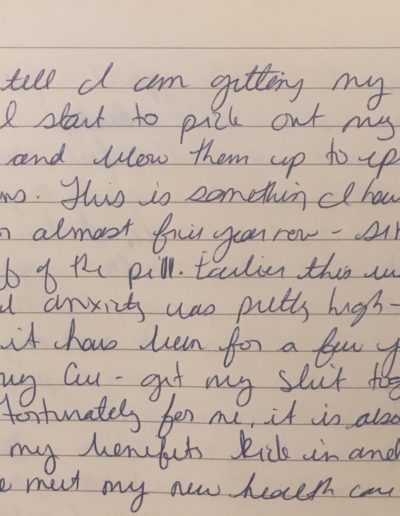 tell I am getting my
I start to pick out my
and blow them up to ep
ns. This is something I hav
almost five years now - sin
of the pill. Earlier this
anxiety was pretty high-
it has been for a few y
my cue - get my shit tog
fortunately for me, it is also
my benefits kick in and
meet my new health car